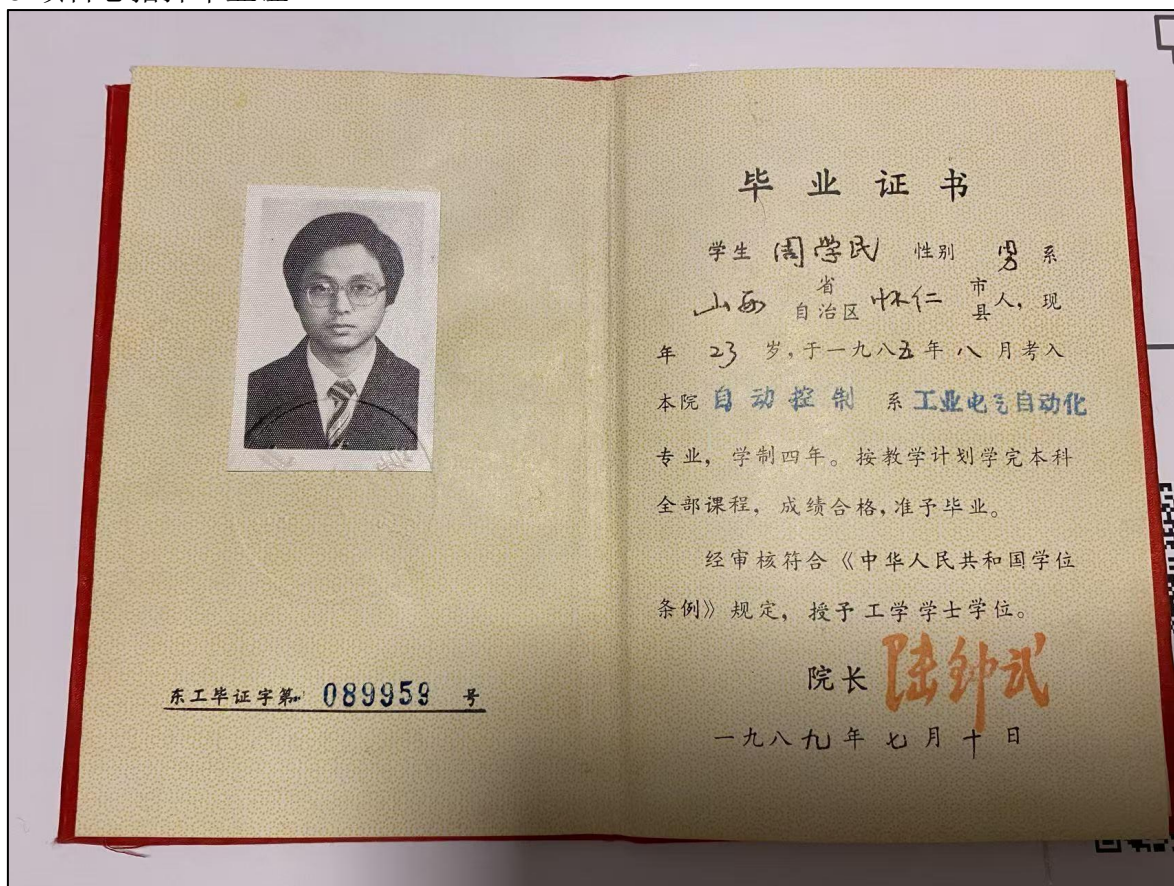 东工毕证字第 089959 号
毕业证书
学生 周学民 性别 男 系
山西 省自治区 怀仁 市县人,现
年 23 岁,于一九八五年八月考入
本院 自动控制 系 工业电气自动化
专业,学制四年。按教学计划学完本科
全部课程,成绩合格,准予毕业。
经审核符合《中华人民共和国学位
条例》规定,授予工学学士学位。
院长 陆钟武
一九八九年七月十日